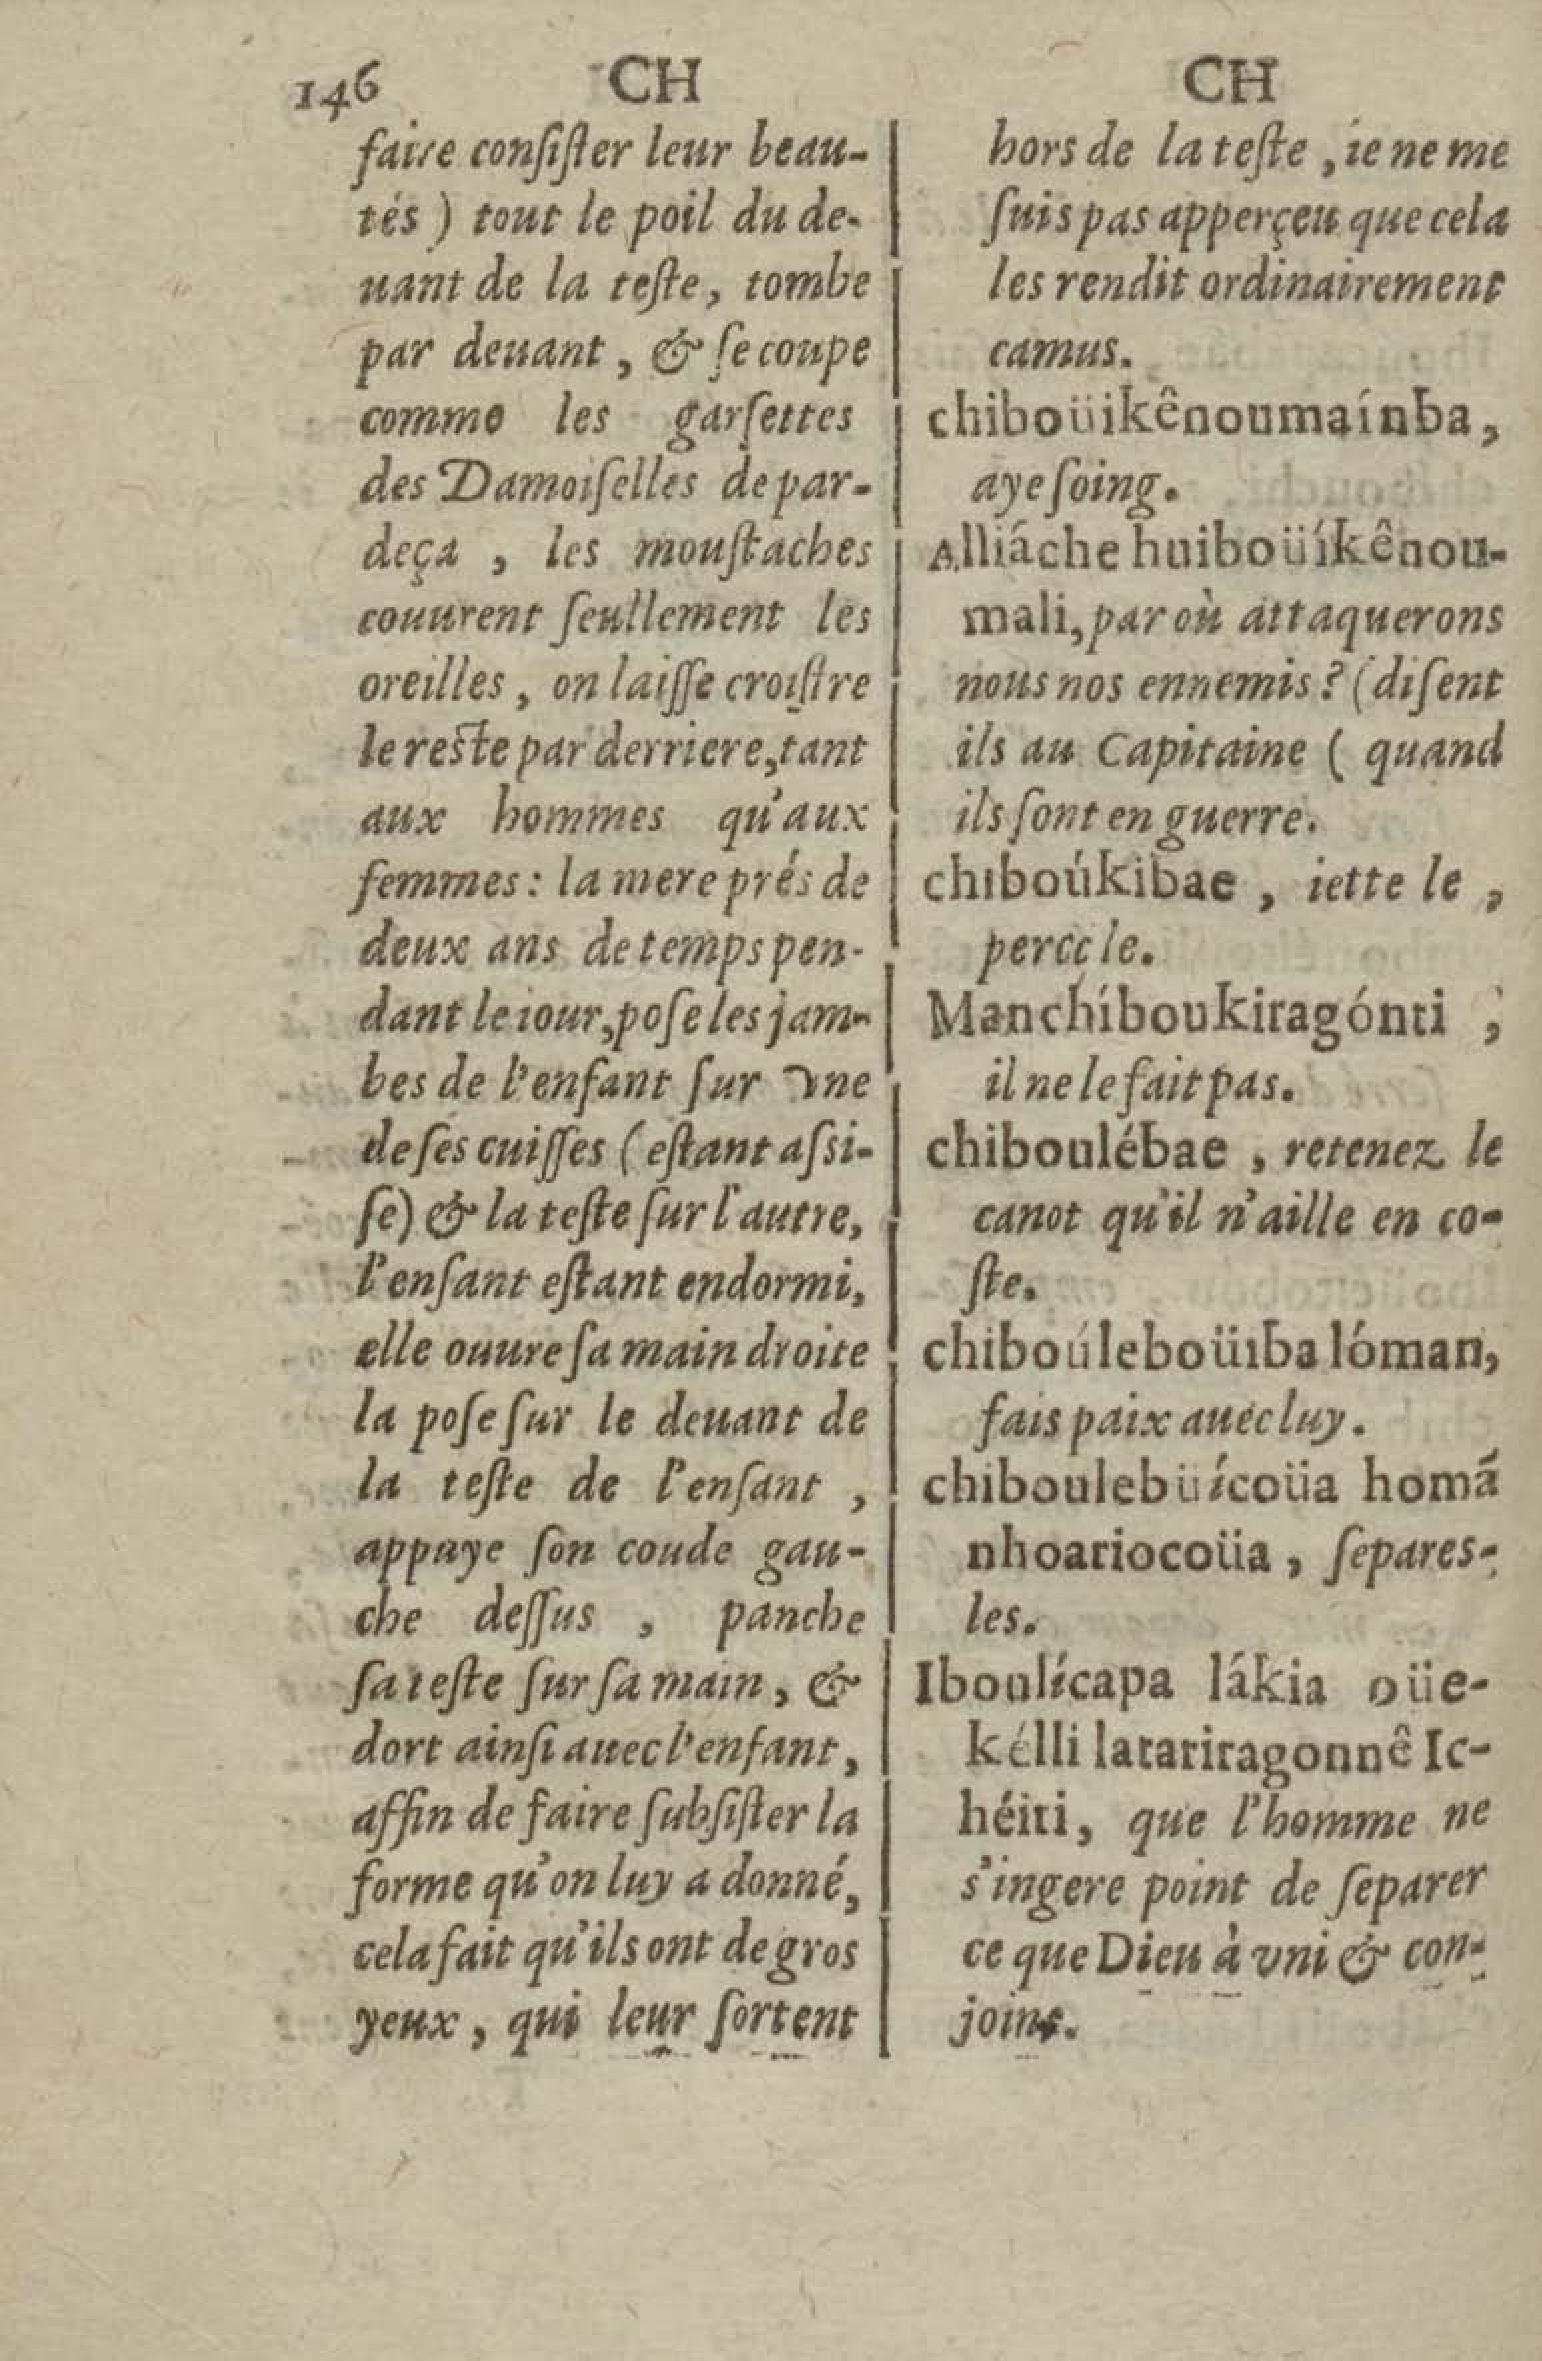 146 CH CH
faire consiſter leur beau-
tés ) tout le poil du de-
uant de la teſte, tombe
par deuant, & ſe coupe
comme les garſettes
des Damoiſelles de par-
deça , les mouſtaches
couurent ſeullement les
oreilles, on laiſſe croiſtre
le reſte par derriere, tant
aux hommes qu'aux
femmes: la mere prés de
deux ans de temps pen-
dant le iour, poſe les jam-
bes de l'enfant ſur vne
de ſes cuiſſes (eſtant aſsi-
ſe) & la teſte ſur l'autre,
l'enſant eſtant endormi,
elle ouure ſa main droite
la poſe ſur le deuant de
la teſte de l'enſant ,
appuye ſon coude gau-
che deſſus , panche
ſa teſte ſur ſa main, &
dort ainſi auec l'enfant,
affin de faire ſubſiſter la
forme qu'on luy a donné,
cela fait qu'ils ont de gros
yeux, qui leur ſortent
hors de la teſte, ie ne me
ſuis pas apperçeu que cela
les rendit ordinairement
camus.
chiboüikênoumaínba,
aye ſoing.
Alliáche huiboüíkênou-
mali, par où attaquerons
nous nos ennemis? (diſent
ils au Capitaine ( quand
ils ſont en guerre.
chiboúkibae , iette le ,
perce le.
Manchíboukiragónti ,
il ne le fait pas.
chiboulébae , retenez le
canot qu'il n'aille en co-
ſte.
chiboúleboüiba lóman,
fais paix auec luy.
chiboulebüícoüa homá
nhoariocoüa, ſepares-
les.
Iboulícapa lákia oüe-
kélli latariragonnê Ic-
héiti, que l'homme ne
s'ingere point de ſeparer
ce que Dieu à vni & con-
joint.